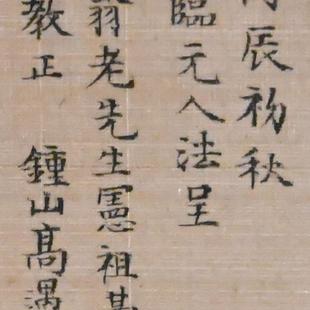 辰初秋
臨元人法呈
翁老先生憲祖
教正 鍾山高遇